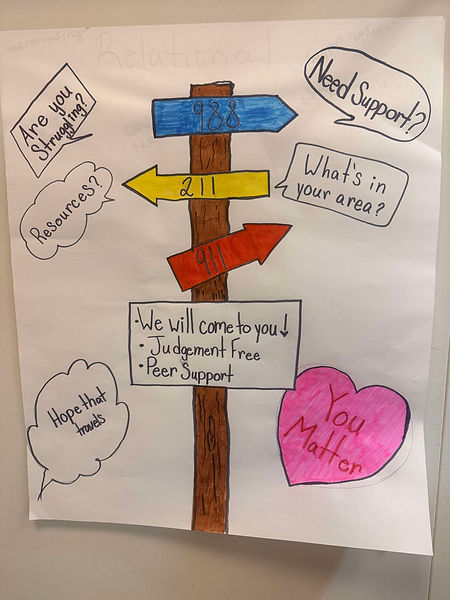 Relational
Are you
Struggling?
988
Need Support?
Resources?
211
What's in
your area?
911
• We will come to you↓
• Judgement Free
• Peer Support
Hope that
travels
You
Matter